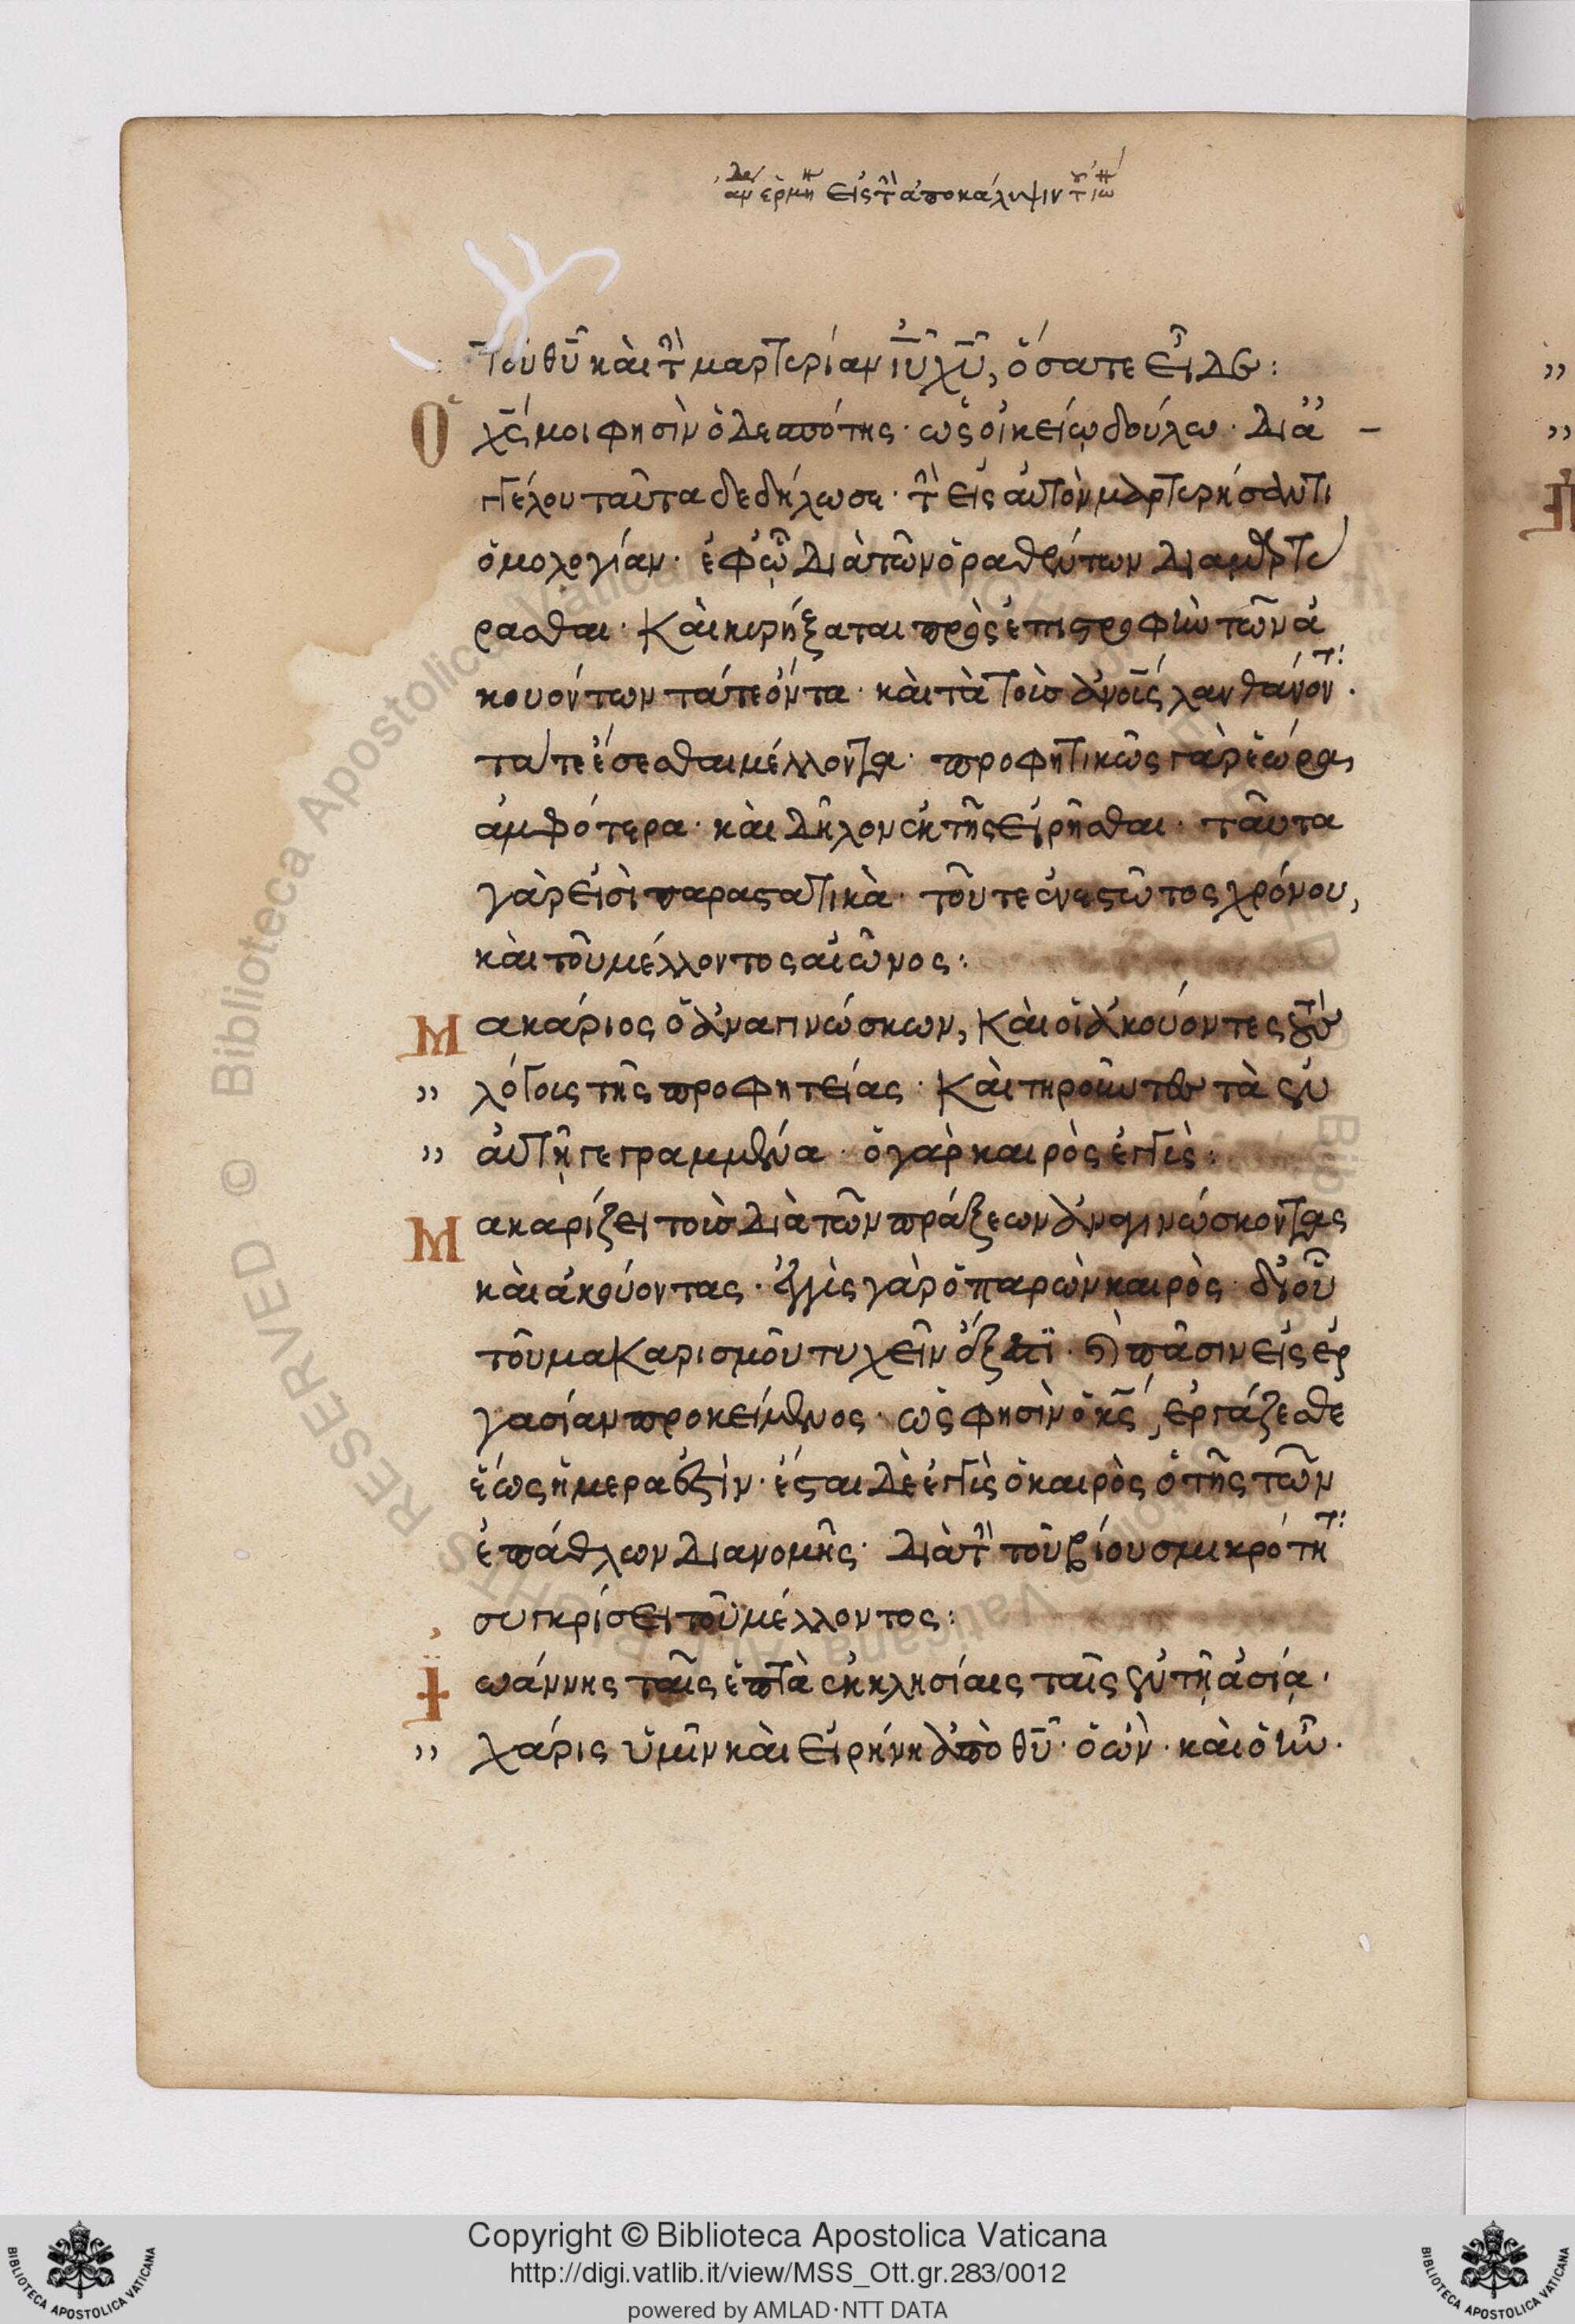 εἰς τ(ὴν) ἀποκάλυψιν
τοῦ θῦ καὶ τ(ὴν) μαρτυρίαν ἰῦ χῦ, ὅσα τε εἶδε:
Ὁ χς μοι φησὶν ὁ δεσπότης· ὡς οἰκείω δούλω· δι' ἀγ
γέλου ταῦτα δεδήλωσε· τ(ὴν) εἰς αὐτὸν μαρτυρήσαντι
ὁμολογίαν· ἐφ' ᾧ διὰ τῶν ὁραθέντων διαμαρτύ
ρασθαι· καὶ κηρύξαι πρὸς ἐπιστροφὴν τῶν ἀ
κουόντων τά τε ὄντα· καὶ τὰ τοὺς ἀνοις λανθάνοντ(α)·
τά τε ἔσεσθαι μέλλοντα· προφητικῶς γὰρ ἑώρα
ἀμφότερα· καὶ δῆλον ἐκ τῆς εἰρῆσθαι· ταῦτα
γάρ εἰσὶ παραστατικὰ· τοῦ τε ἐνεστῶτος χρόνου,
καὶ τοῦ μέλλοντος αἰῶνος:
Μακάριος ὁ ἀναγινώσκων, καὶ οἱ ἀκούοντες τοὺς
" λόγους τῆς προφητείας· καὶ τηροῦντες τὰ ἐν
" αὐτῇ γεγραμμένα· ὁ γὰρ καιρὸς ἐγγὺς:
Μακαρίζει τοὺς διὰ τῶν πράξεων ἀναγινώσκοντας
καὶ ἀκούοντας· ἐγγὺς γὰρ ὁ παρὼν καιρὸς· δι' οὗ
τοῦ μακαρισμοῦ τυχεῖν ἔξεστι· καὶ πᾶσιν εἰς ἐρ
γασίαν προκείμενος· ὡς φησὶν ὁ κς, ἐργάζεσθε
ἕως ἡμέρα ἐστὶν· ἔσται δὲ ἐγγὺς ὁ καιρὸς ὁ τῆς τῶν
ἐπάθλων διανομῆς· διὰ τ(ὴν) τοῦ βίου σμικρότητ(α)
συγκρίσει τοῦ μέλλοντος:
Ἰωάννης ταῖς ἑπτὰ ἐκκλησίαις ταῖς ἐν τῇ ἀσία·
" χάρις ὑμῖν καὶ εἰρήνη ἀπὸ θῦ· ὁ ὢν· καὶ ὁ ἦν·
Copyright © Biblioteca Apostolica Vaticana
http://digi.vatlib.it/view/MSS_Ott.gr.283/0012
powered by AMLAD·NTT DATA